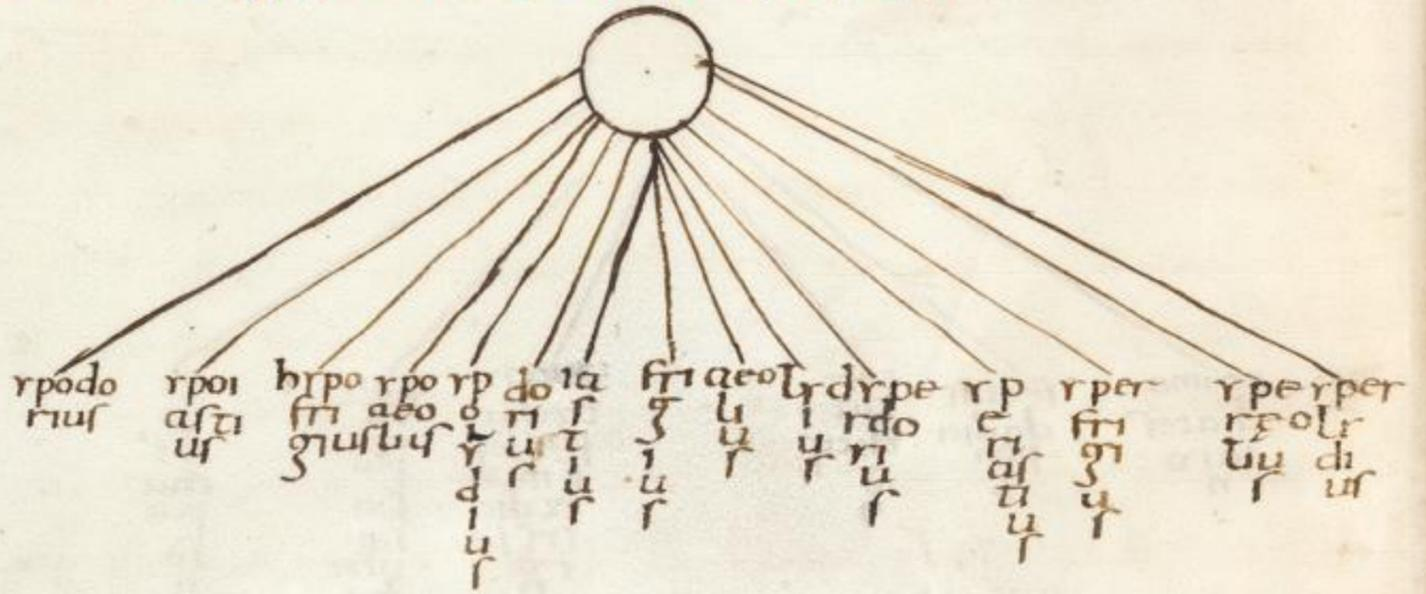 ypodo
rius
ypoi
asti
us
hypo
fri
gius
ypo
aeo
lius
yp
o
l
y
d
i
u
s
do
ri
u
s
ia
s
t
i
u
s
fri
g
i
u
s
aeo
li
u
s
lyd
i
u
s
ype
rdo
ri
u
s
yp
e
ri
as
ti
u
s
yper
fri
gi
u
s
ype
ręo
liu
s
yper
ly
di
us